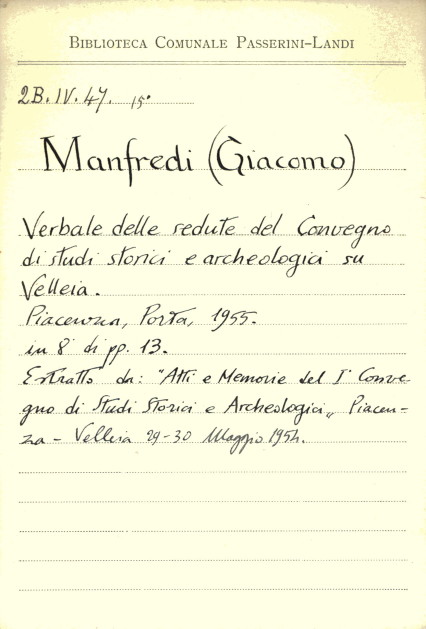 BIBLIOTECA COMUNALE PASSERINI-LANDI
2B.IV.47. 15°
Manfredi (Giacomo)
Verbale delle sedute del Convegno
di studi storici e archeologici su
Velleia.
Piacenza, Porta, 1955.
in 8° di pp. 13.
Estratto da: "Atti e Memorie del I° Conve-
gno di Studi Storici e Archeologici„ Piacen-
za - Velleia 29-30 Maggio 1954.